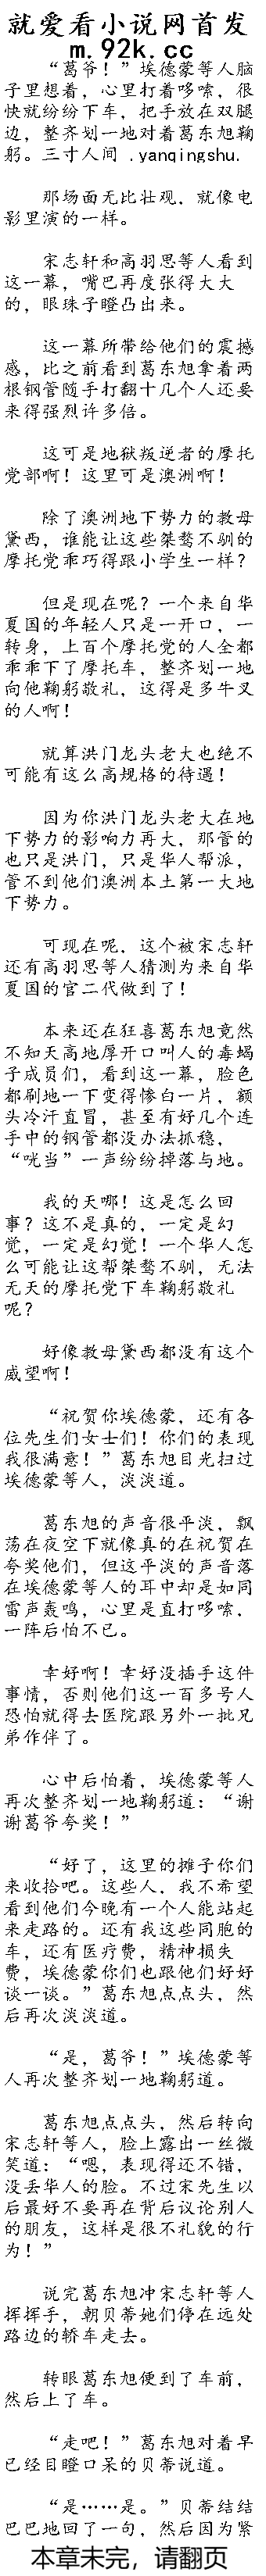 就爱看小说网首发
m.92k.cc
“葛爷！”埃德蒙等人脑
子里想着，心里打着哆嗦，很
快就纷纷下车，把手放在双腿
边，整齐划一地对着葛东旭鞠
躬。三寸人间 .yanqingshu.
那场面无比壮观，就像电
影里演的一样。
宋志轩和高羽思等人看到
这一幕，嘴巴再度张得大大
的，眼珠子瞪凸出来。
这一幕所带给他们的震撼
感，比之前看到葛东旭拿着两
根钢管随手打翻十几个人还要
来得强烈许多倍。
这可是地狱叛逆者的摩托
党部啊！这里可是澳洲啊！
除了澳洲地下势力的教母
黛西，谁能让这些桀骜不驯的
摩托党乖巧得跟小学生一样？
但是现在呢？一个来自华
夏国的年轻人只是一开口，一
转身，上百个摩托党的人全都
乖乖下了摩托车，整齐划一地
向他鞠躬敬礼，这得是多牛叉
的人啊！
就算洪门龙头老大也绝不
可能有这么高规格的待遇！
因为你洪门龙头老大在地
下势力的影响力再大，那管的
也只是洪门，只是华人帮派，
管不到他们澳洲本土第一大地
下势力。
可现在呢，这个被宋志轩
还有高羽思等人猜测为来自华
夏国的官二代做到了！
本来还在狂喜葛东旭竟然
不知天高地厚开口叫人的毒蝎
子成员们，看到这一幕，脸色
都刷地一下变得惨白一片，额
头冷汗直冒，甚至有好几个连
手中的钢管都没办法抓稳，
“咣当”一声纷纷掉落与地。
我的天哪！这是怎么回
事？这不是真的，一定是幻
觉，一定是幻觉！一个华人怎
么可能让这帮桀骜不驯，无法
无天的摩托党下车鞠躬敬礼
呢？
好像教母黛西都没有这个
威望啊！
“祝贺你埃德蒙，还有各
位先生们女士们！你们的表现
我很满意！”葛东旭目光扫过
埃德蒙等人，淡淡道。
葛东旭的声音很平淡，飘
荡在夜空下就像真的在祝贺在
夸奖他们，但这平淡的声音落
在埃德蒙等人的耳中却是如同
雷声轰鸣，心里是直打哆嗦，
一阵后怕不已。
幸好啊！幸好没插手这件
事情，否则他们这一百多号人
恐怕就得去医院跟另外一批兄
弟作伴了。
心中后怕着，埃德蒙等人
再次整齐划一地鞠躬道：“谢
谢葛爷夸奖！”
“好了，这里的摊子你们
来收拾吧。这些人，我不希望
看到他们今晚有一个人能站起
来走路的。还有我这些同胞的
车，还有医疗费，精神损失
费，埃德蒙你们也跟他们好好
谈一谈。”葛东旭点点头，然
后再次淡淡道。
“是，葛爷！”埃德蒙等
人再次整齐划一地鞠躬道。
葛东旭点点头，然后转向
宋志轩等人，脸上露出一丝微
笑道：“嗯，表现得还不错，
没丢华人的脸。不过宋先生以
后最好不要再在背后议论别人
的朋友，这样是很不礼貌的行
为！”
说完葛东旭冲宋志轩等人
挥挥手，朝贝蒂她们停在远处
路边的轿车走去。
转眼葛东旭便到了车前，
然后上了车。
“走吧！”葛东旭对着早
已经目瞪口呆的贝蒂说道。
“是……是。”贝蒂结结
巴巴地回了一句，然后因为紧
本章未完，请翻页